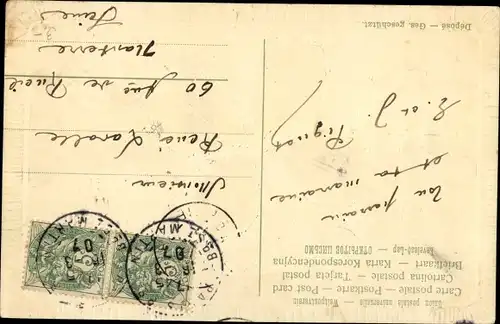 Union postale universelle — Weltpostverein
Carte postale — Postkarte — Post card
Cartolina postale — Tarjeta postal
Briefkaart — Karta Korespondencyjna
Levelező-Lap — ОТКРЫТОЕ ПИСЬМО
Ton parrain
et ta marraine
E. et J.
Pignot
Déposé — Ges. geschützt.
Monsieur
René Lavalle
60 Rue de Rueil
Nanterre
Seine